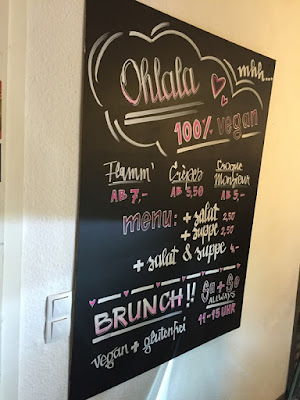 mhh...
Ohlala
100% vegan
Flamm' Crêpes Croque Monsieur
AB 7,- AB 3,50 AB 5,-
menu: + salat 2,50
+ suppe 2,50
+ salat & suppe 4,-
BRUNCH!! Sa + So
ALLWAYS
vegan + glutenfrei 11-15 UHR